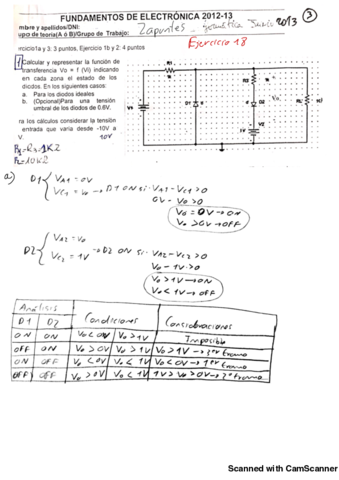 FUNDAMENTOS DE ELECTRÓNICA 2012-13
mbre y apellidos/DNI:
upo de teoría(A ó B)/Grupo de Trabajo: Zapuntes - 2013 3
rcicio1a y 3: 3 puntos, Ejercicio 1b y 2: 4 puntos
Ejercicio 18
1 Calcular y representar la función de
transferencia Vo = f (Vi) indicando
en cada zona el estado de los
diodos. En los siguientes casos:
a. Para los diodos ideales
b. (Opcional)Para una tensión
umbral de los diodos de 0.6V.
ra los cálculos considerar la tensión
entrada que varía desde -10V a
V. 10V
R1 = R3 = 1K2
R2 = 10K2
R1
R2
D1
D2
V2
a)
D1 VA1 = 0V
VC1 = Vo → D1 ON si VA1 - VC1 > 0
0V - Vo > 0
Vo = 0V → ON
Vo > 0V → OFF
D2 VA2 = Vo
VC2 = 1V → D2 ON si VA2 - VC2 > 0
Vo - 1V > 0
Vo > 1V → ON
Vo < 1V → OFF
Análisis Condiciones Consideraciones
D1 D2
ON ON Vo < 0V Vo > 1V Imposible
OFF ON Vo > 0V Vo > 1V Vo > 1V → 3er tramo
ON OFF Vo < 0V Vo < 1V Vo < 0V → 1er tramo
OFF OFF Vo > 0V Vo < 1V 1V > Vo > 0V → 2º tramo
Scanned with CamScanner